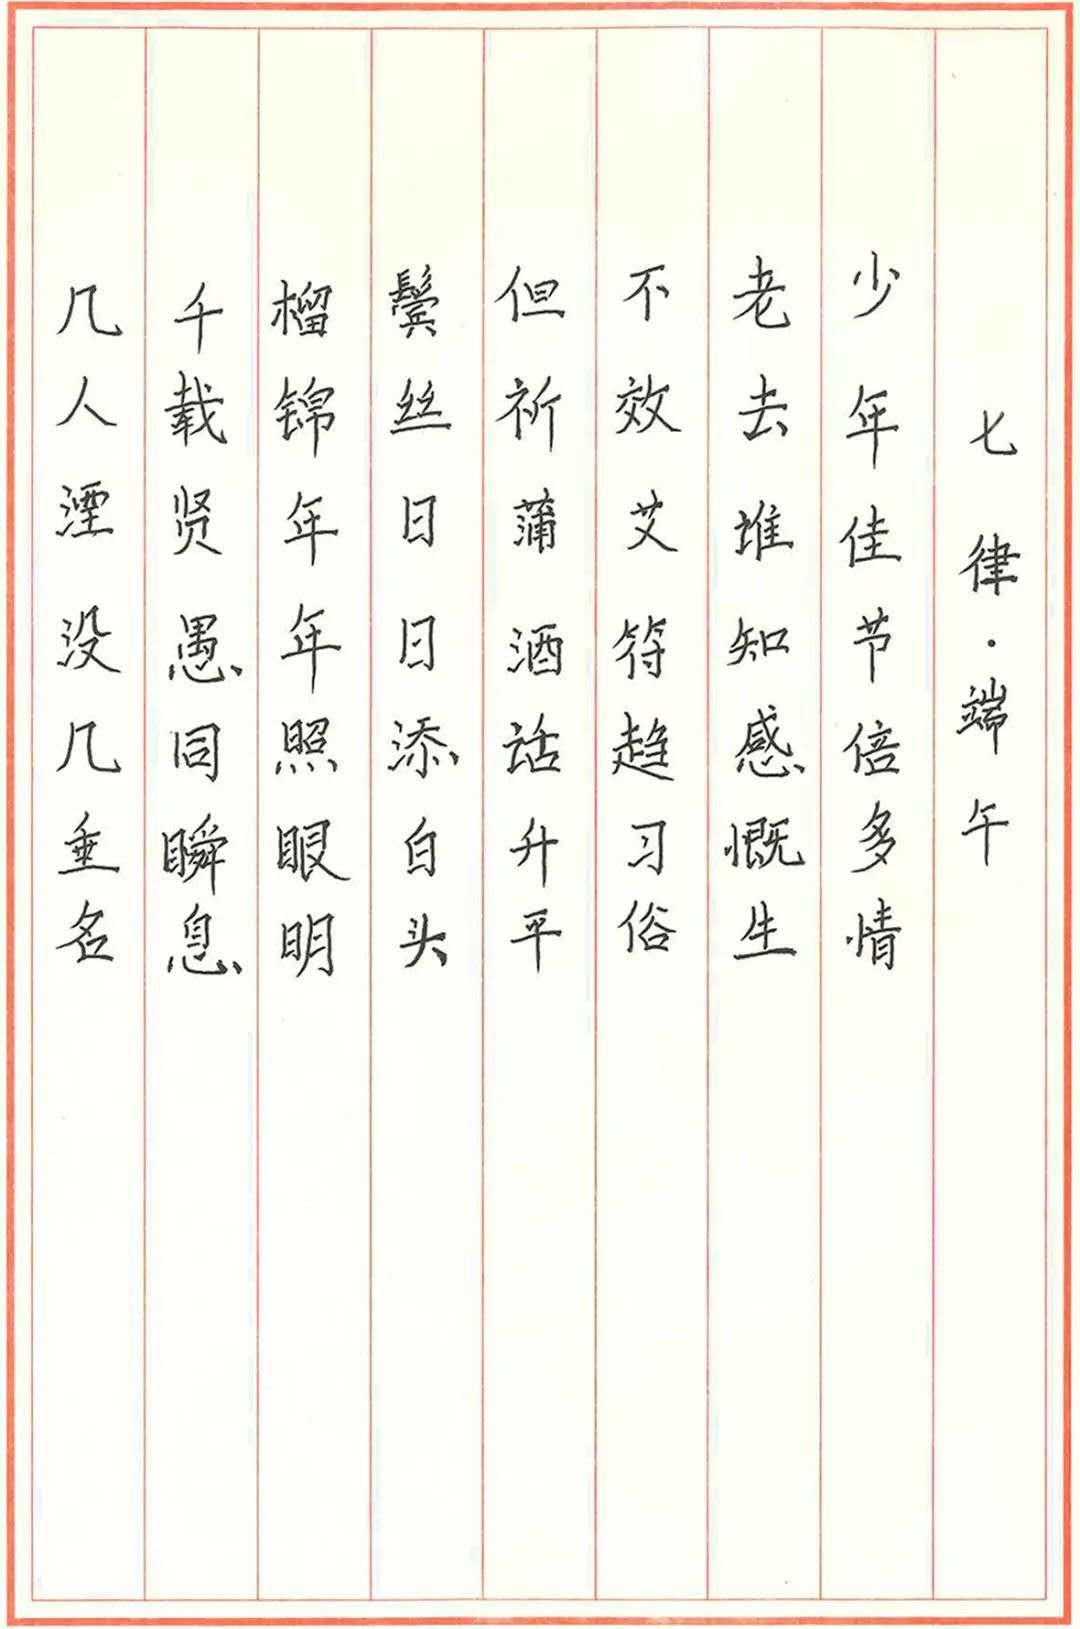 七律·端午
少年佳节倍多情
老去谁知感慨生
不效艾符趋习俗
但祈蒲酒话升平
鬓丝日日添白头
榴锦年年照眼明
千载贤愚同瞬息
几人湮没几垂名